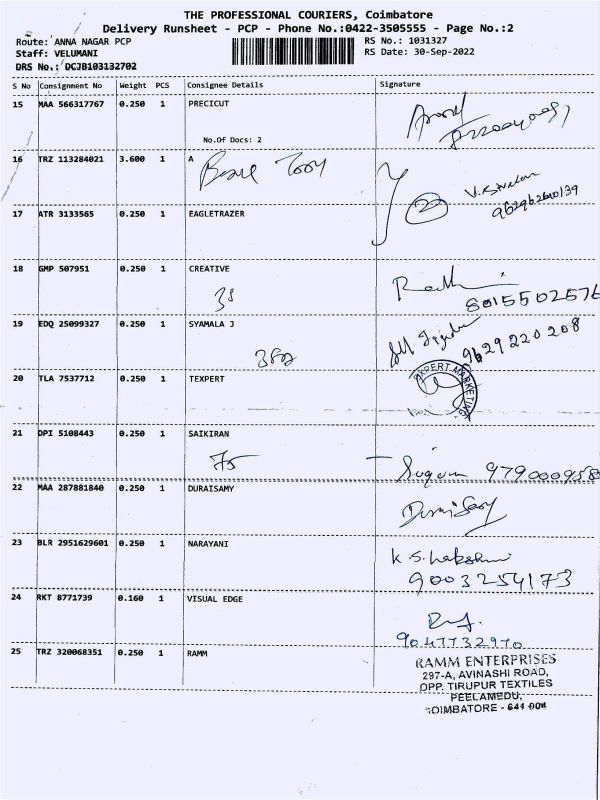 THE PROFESSIONAL COURIERS, Coimbatore
Delivery Runsheet - PCP - Phone No.:0422-3505555 - Page No.:2
Route: ANNA NAGAR PCP RS No.: 1031327
Staff: VELUMANI RS Date: 30-Sep-2022
DRS No.: DCJB103132702
S No Consignment No Weight PCS Consignee Details Signature
15 MAA 566317767 0.250 1 PRECICUT
No.Of Docs: 2
16 TRZ 113284021 3.600 1 A
22
17 ATR 3133565 0.250 1 EAGLETRAZER
18 GMP 507951 0.250 1 CREATIVE
8015502576
19 EDQ 25099327 0.250 1 SYAMALA J
9629220208
20 TLA 7537712 0.250 1 TEXPERT
21 DPI 5108443 0.250 1 SAIKIRAN
75 Sugum 979000958
22 MAA 287881840 0.250 1 DURAISAMY
Duraisamy
23 BLR 2951629601 0.250 1 NARAYANI
K S. Lakshmi
9003254173
24 RKT 8771739 0.160 1 VISUAL EDGE
9047732970
25 TRZ 320068351 0.250 1 RAMM
RAMM ENTERPRISES
297-A, AVINASHI ROAD,
OPP. TIRUPUR TEXTILES
PEELAMEDU,
COIMBATORE - 641 004